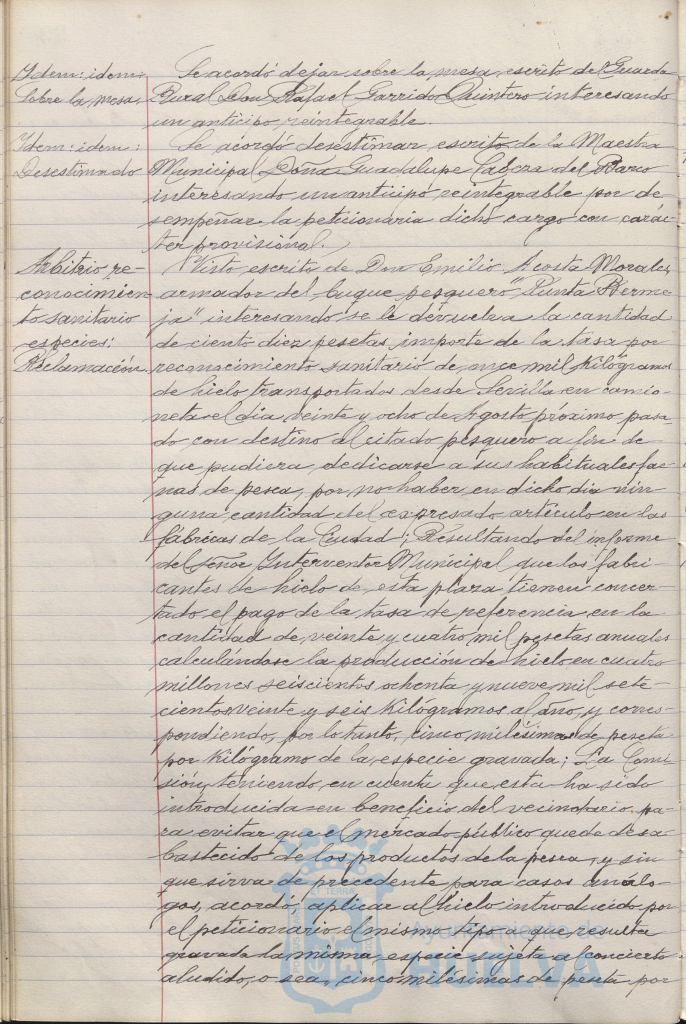 Idem: idem:
Sobre la mesa.
Se acordó dejar sobre la mesa, escrito del Guarda
Rural Don Rafael Garrido Quintero interesando
un anticipo reintegrable.
Idem: idem:
Desestimado
Se acordó desestimar escrito de la Maestra
Municipal Doña Guadalupe Labora del Barco
interesando un anticipo reintegrable por de
sempeñar la peticionaria dicho cargo con carác-
ter provisional.
Arbitrio re-
conocimien
to sanitario
especies:
Reclamación.
Visto escrito de Don Emilio Acosta Morales,
armador del buque pesquero "Punta Berme-
ja" interesando se le devuelva la cantidad
de ciento diez pesetas, importe de la tasa por
reconocimiento sanitario de once mil kilógramos
de hielo transportados desde Sevilla en camio-
neta el día veinte y ocho de Agosto próximo pasa-
do con destino al citado pesquero a fin de
que pudiera dedicarse a sus habituales fae-
nas de pesca, por no haber en dicho día nin-
guna cantidad del expresado artículo en las
fábricas de la Ciudad; Resultando del informe
del Señor Interventor Municipal que los fabri-
cantes de hielo de esta plaza tienen concer-
tado el pago de la tasa de referencia en la
cantidad de veinte y cuatro mil pesetas anuales
calculándose la producción de hielo en cuatro
millones seiscientos ochenta y nueve mil sete-
cientos veinte y seis kilógramos al año, y corres-
pondiendo, por lo tanto, cinco milésimas de peseta
por kilógramo de la especie gravada; La Comi-
sión, teniendo en cuenta que esta ha sido
introducida en beneficio del vecindario, pa-
ra evitar que el mercado público quede desa-
bastecido de los productos de la pesca, y sin
que sirva de precedente para casos análo-
gos, acordó, aplicar al hielo introducido por
el peticionario el mismo tipo a que resulta
gravada la misma especie sujeta al concierto
aludido, o sea, cinco milésimas de peseta por
Ayuntamiento de
HUELVA